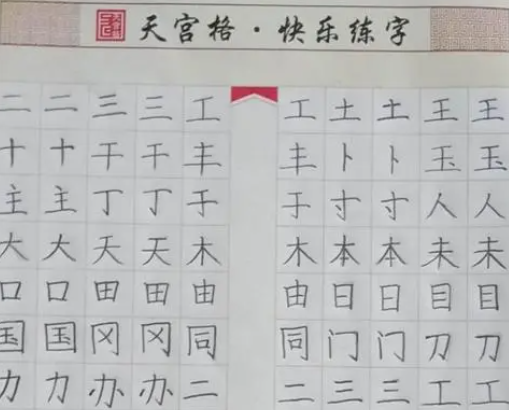 天宫格·快乐练字
二二三三工工土土王王
十十干干丰丰卜卜玉玉
主主丁丁于于寸寸人人
大大天天木木本本未未
口口田田由由日日目目
国国冈冈同同门门刀刀
力力办办二二三三工工